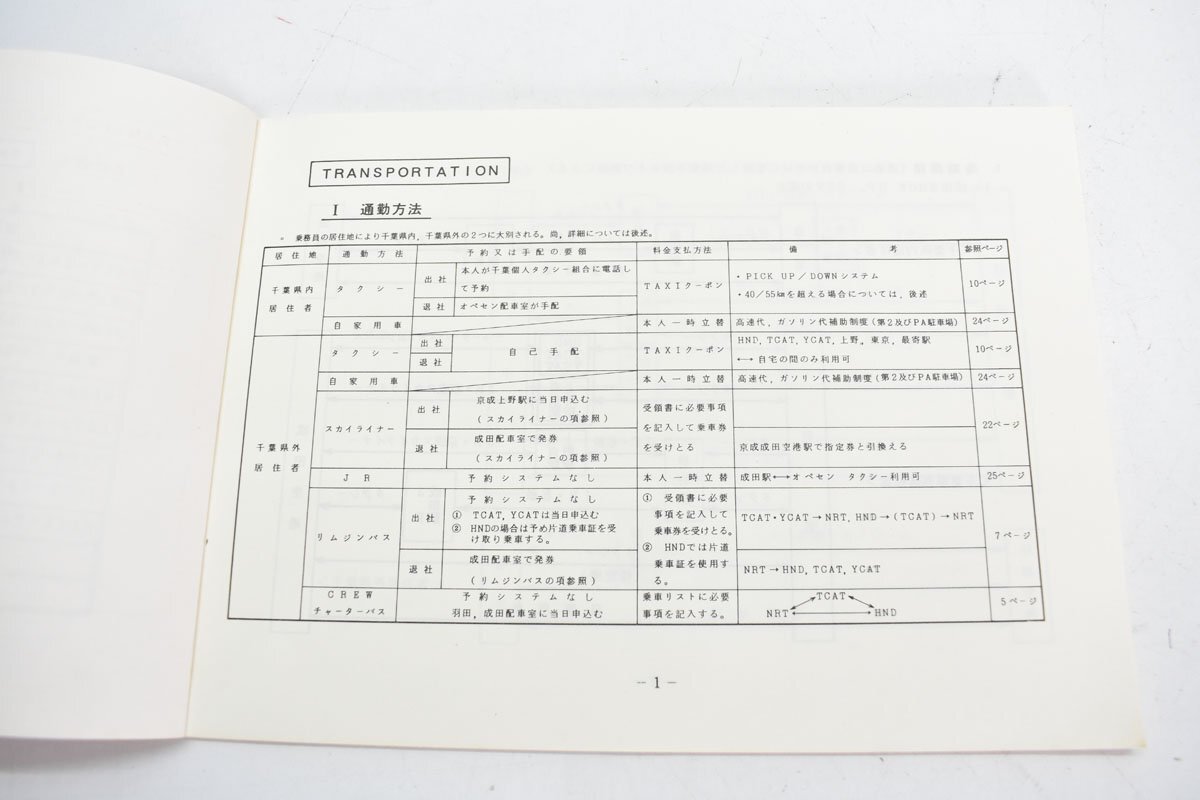 TRANSPORTATION
Ⅰ 通勤方法
。 乗務員の居住地により千葉県内,千葉県外の2つに大別される。尚,詳細については後述。
居住地 通勤方法 予約又は手配の要領 料金支払方法 備考 参照ページ
千葉県内
居住者
タクシー
出社
本人が千葉個人タクシー組合に電話し
て予約
退社
オペセン配車室が手配
TAXIクーポン
・PICK UP/DOWNシステム
・40/55㎞を超える場合については,後述
10ページ
自家用車 本人一時立替 高速代,ガソリン代補助制度(第2及びPA駐車場) 24ページ
千葉県外
居住者
タクシー
出社
退社
自己手配
TAXIクーポン
HND,TCAT,YCAT,上野,東京,最寄駅
←→ 自宅の間のみ利用可
10ページ
自家用車 本人一時立替 高速代,ガソリン代補助制度(第2及びPA駐車場) 24ページ
スカイライナー
出社
京成上野駅に当日申込む
(スカイライナーの項参照)
退社
成田配車室で発券
(スカイライナーの項参照)
受領書に必要事項
を記入して乗車券
を受けとる
京成成田空港駅で指定券と引換える
22ページ
JR 予約システムなし 本人一時立替 成田駅←→オペセン タクシー利用可 25ページ
リムジンバス
出社
予約システムなし
① TCAT,YCATは当日申込む
② HNDの場合は予め片道乗車証を受
け取り乗車する。
退社
成田配車室で発券
(リムジンバスの項参照)
① 受領書に必要
事項を記入して
乗車券を受けとる。
② HNDでは片道
乗車証を使用す
る。
TCAT・YCAT→NRT,HND→(TCAT)→NRT
NRT→HND,TCAT,YCAT
7ページ
CREW
チャーターバス
予約システムなし
羽田,成田配車室に当日申込む
乗車リストに必要
事項を記入する。
TCAT
NRT ←→ HND
5ページ
－1－